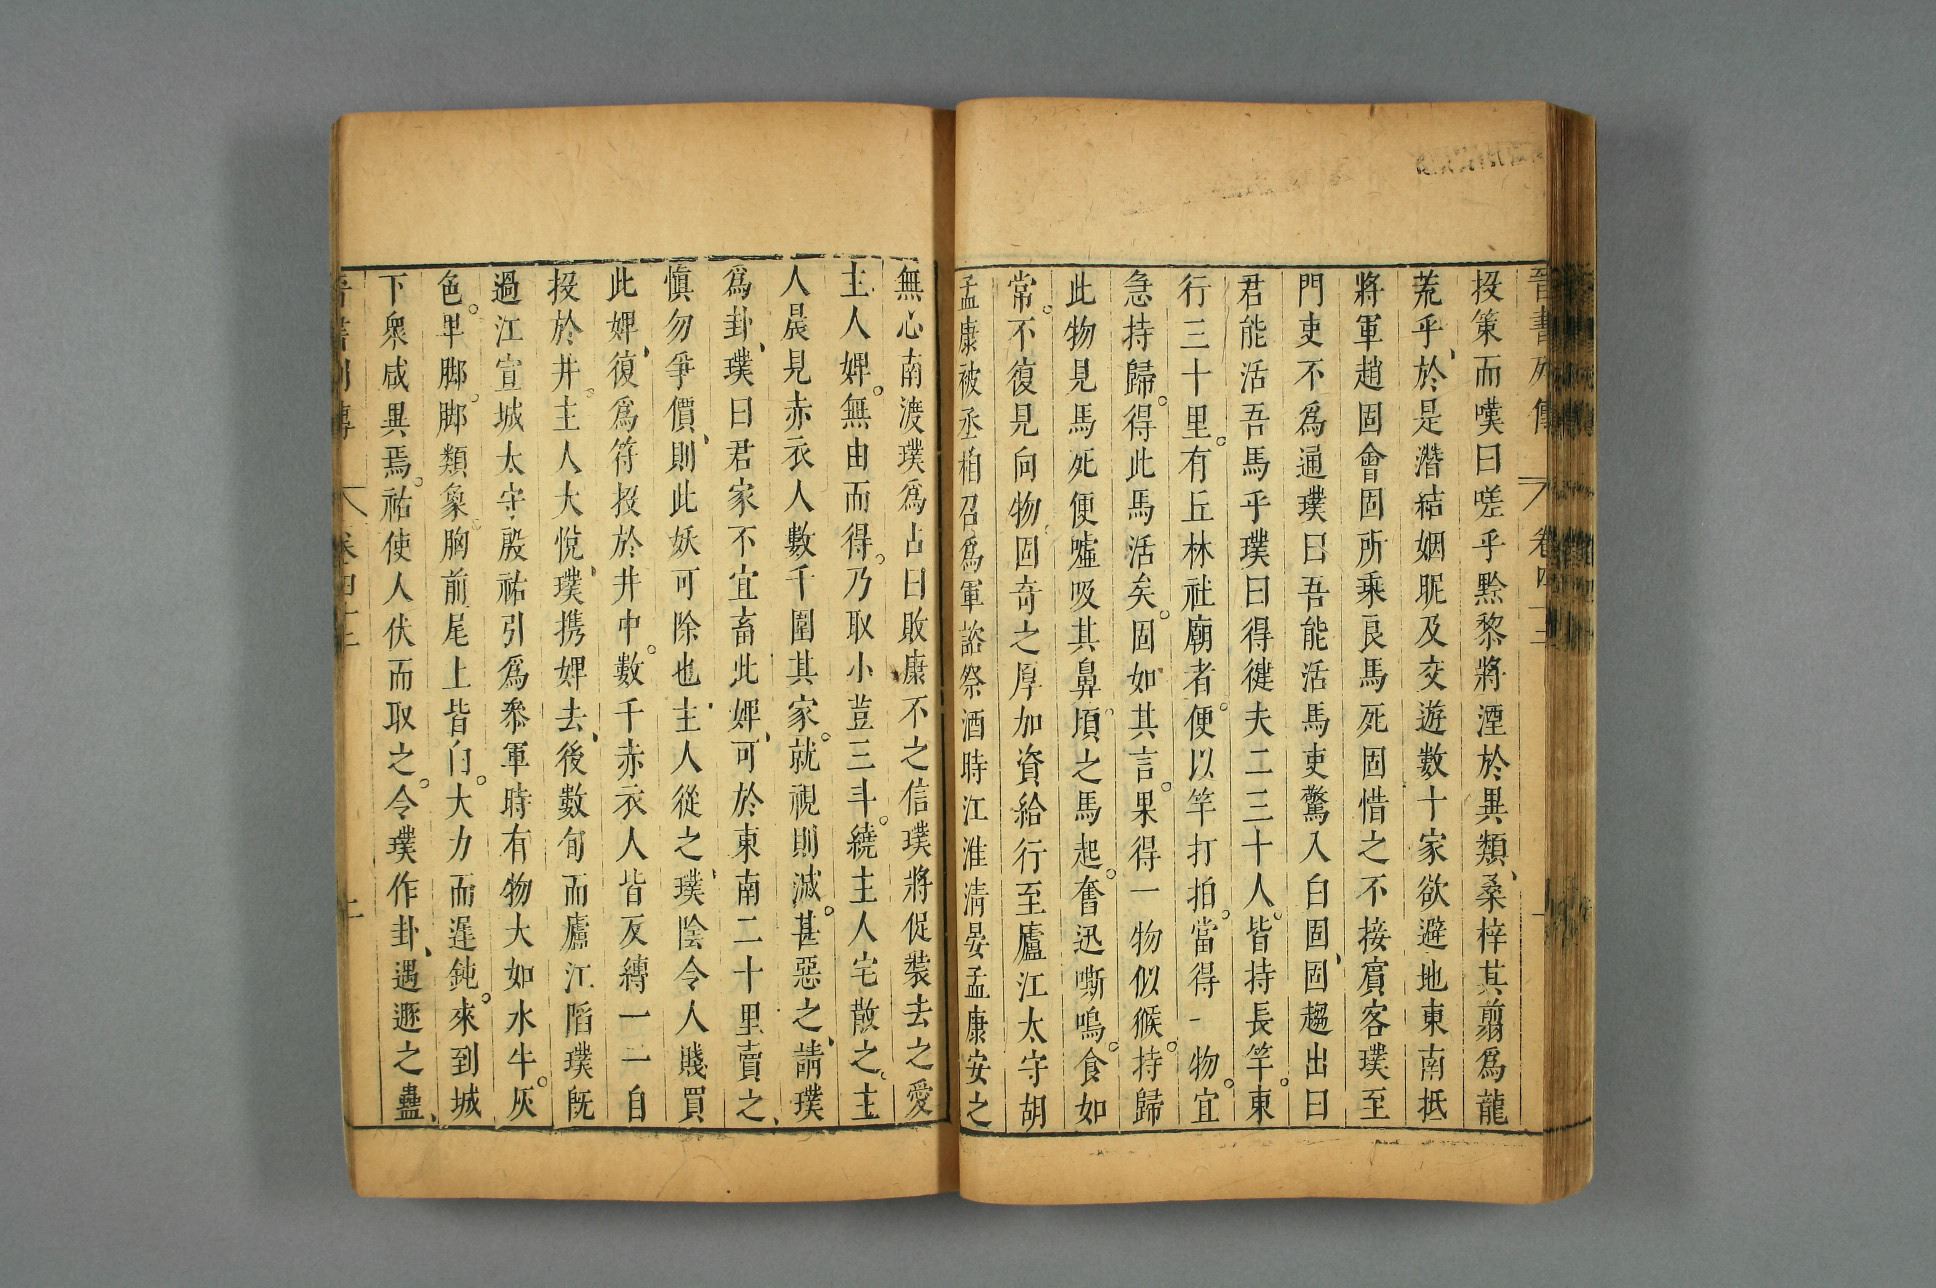 晉書列傳 卷四十二 一
投策而嘆曰嗟乎黔黎將湮於異類桑梓其翦爲龍
荒乎於是潛結姻昵及交遊數十家欲避地東南抵
將軍趙固會固所乘良馬死固惜之不接賓客璞至
門吏不爲通璞曰吾能活馬吏驚入白固固趨出曰
君能活吾馬乎璞曰得健夫二三十人皆持長竿東
行三十里有丘林社廟者便以竿打拍當得一物宜
急持歸得此馬活矣固如其言果得一物似猴持歸
此物見馬死便噓吸其鼻頃之馬起奮迅嘶鳴食如
常不復見向物固奇之厚加資給行至廬江太守胡
孟康被丞相召爲軍諮祭酒時江淮清晏孟康安之
無心南渡璞爲占曰敗康不之信璞將促裝去之愛
主人婢無由而得乃取小荳三斗繞主人宅散之主
人晨見赤衣人數千圍其家就視則滅甚惡之請璞
爲卦璞曰君家不宜畜此婢可於東南二十里賣之
慎勿爭價則此妖可除也主人從之璞陰令人賤買
此婢復爲符投於井中數千赤衣人皆反縛一二自
投於井主人大悅璞携婢去後數旬而廬江陷璞旣
過江宣城太守殷祐引爲叅軍時有物大如水牛灰
色卑脚脚類象胸前尾上皆白大力而遲鈍來到城
下衆咸異焉祐使人伏而取之令璞作卦遇遯之蠱
晉書列傳 卷四十二